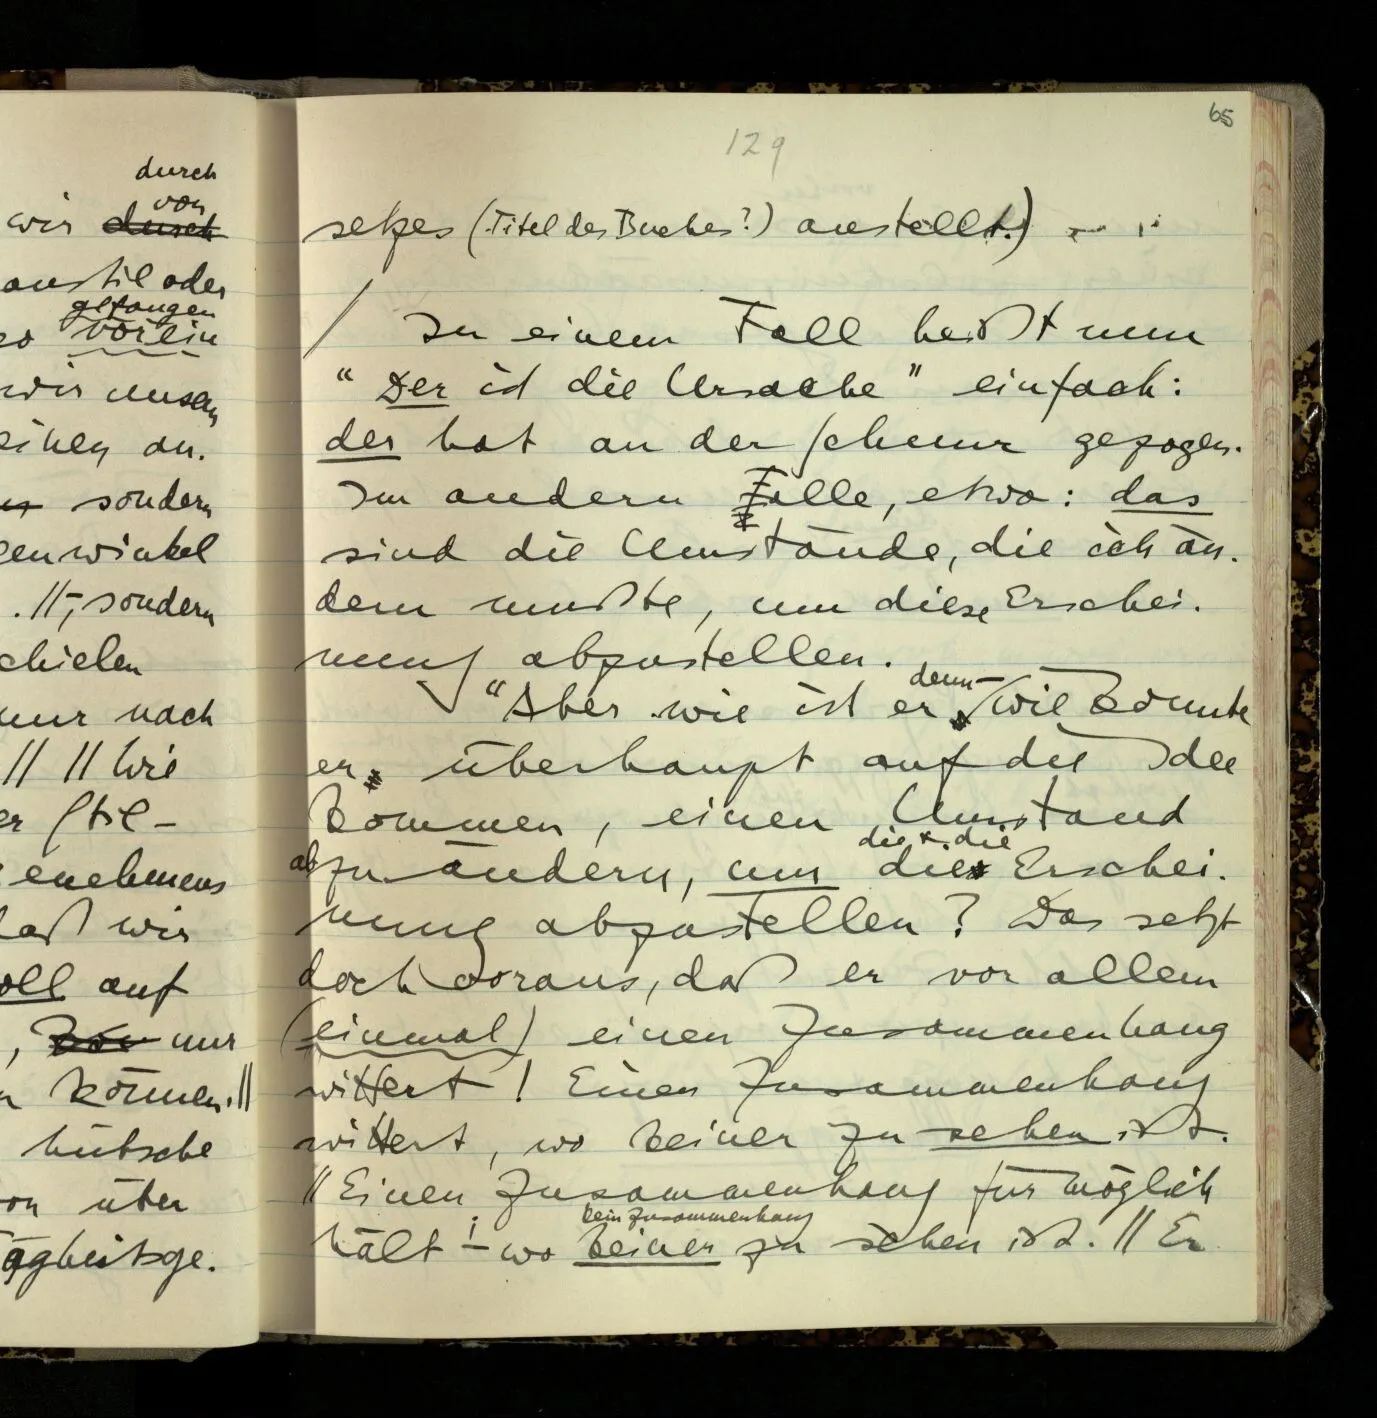 durch
von
wir durch
anstil oder
gefangen
so vorein
wir unsern
einen an.
sondern
genwinkel
.//–, sondern
schielen
nur nach
// // Wie
er Stil–
enehmens
daß wir
soll auf
, nur
n können.//
hübsche
von über
ägheitsge-
65
129
setzes (Titel des Buches?) anstellt.)
/ In einem Fall heißt nun
"Der ist die Ursache" einfach:
der hat an der Schnur gezogen.
Im andern Falle, etwa: das
sind die Umstände, die ich än-
dern mußte, um diese Erschei-
nung abzustellen.
denn –
"Aber wie ist er, wie konnte
er überhaupt auf die Idee
kommen, einen Umstand
die & die
abzuändern, um die Erschei-
nung abzustellen? Das setzt
doch voraus, daß er vor allem
(einmal) einen Zusammenhang
wittert! Einen Zusammenhang
wittert, wo keiner zu sehen ist.
//Einen Zusammenhang für möglich
kein Zusammenhang
hält! – wo keiner zu sehen ist.// Er